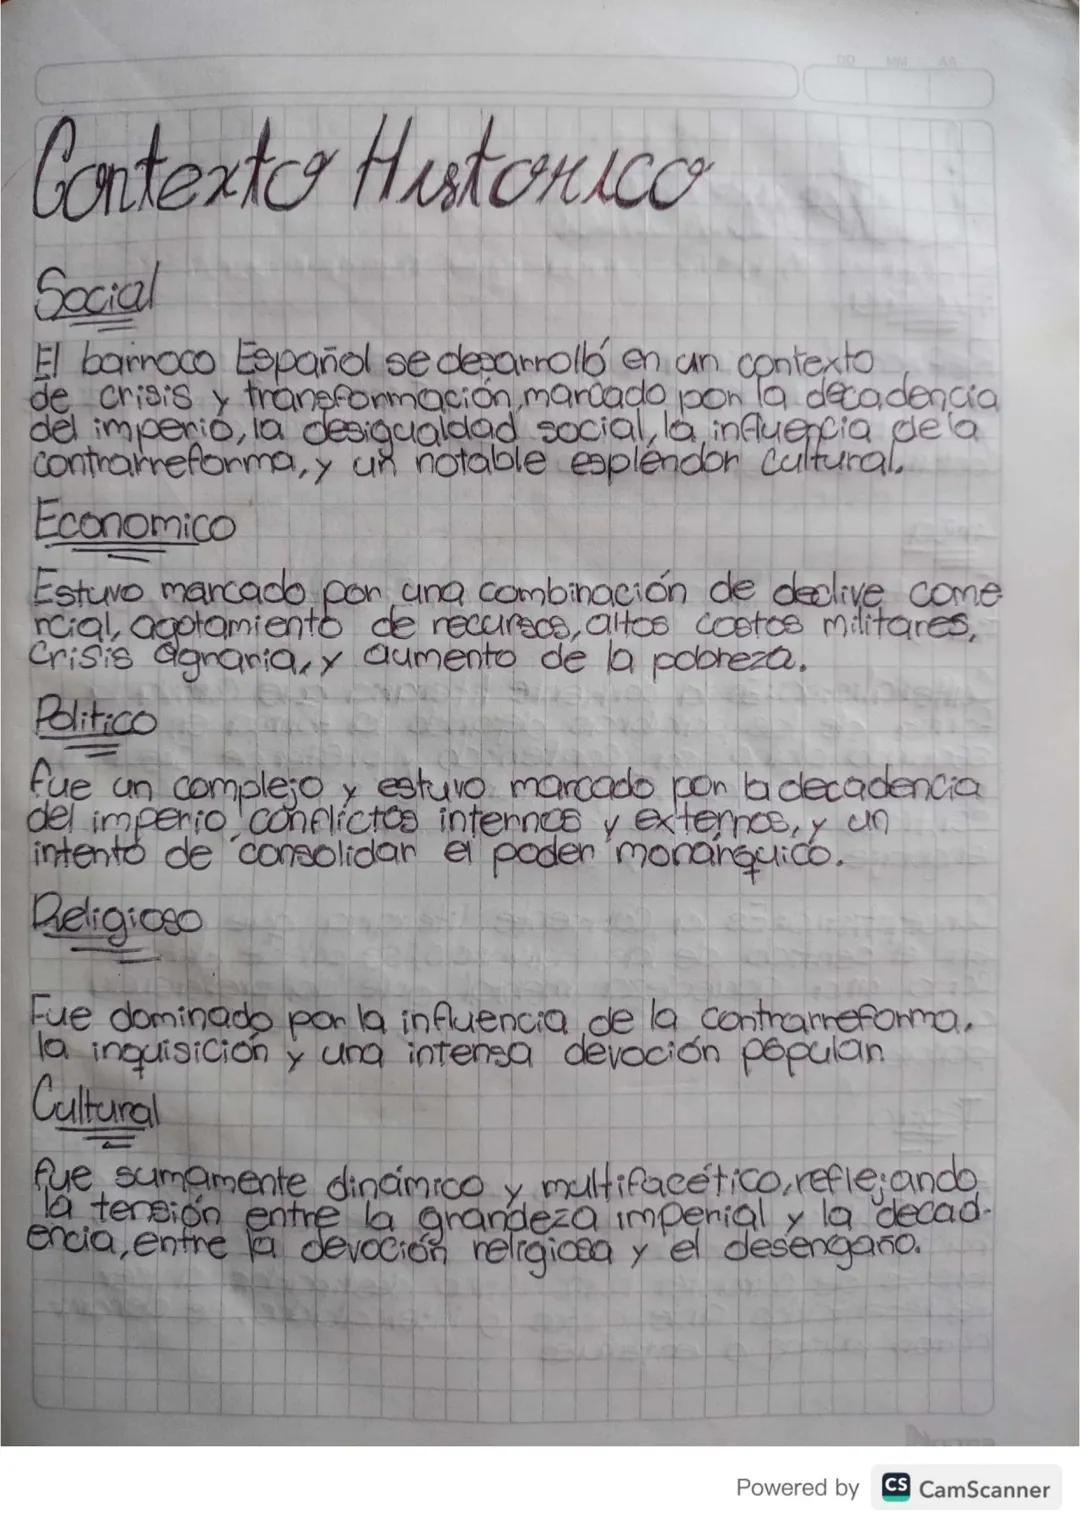 DD MM AA
Contexto Historico
Social
El barroco Español se desarrolló en un contexto
de crisis y transformación, marcado por la decadencia
del imperio, la desigualdad social, la influencia de la
contrarreforma, y un notable esplendor cultural.
Economico
Estuvo marcado por una combinación de declive come
rcial, agotamiento de recursos, altos costos militares,
Crisis agraria, y aumento de la pobreza.
Politico
fue un complejo y estuvo marcado por la decadencia
del imperio, conflictos internos y externos, y un
intento de consolidar el poder monárquico.
Religioso
Fue dominado por la influencia de la contrarreforma,
la inquisición y una intensa devoción popular
Cultural
fue sumamente dinámico y multifacético, reflejando
la tensión entre la grandeza imperial y la decad-
encia, entre la devoción religiosa y el desengaño.
Norma
Powered by CS CamScanner